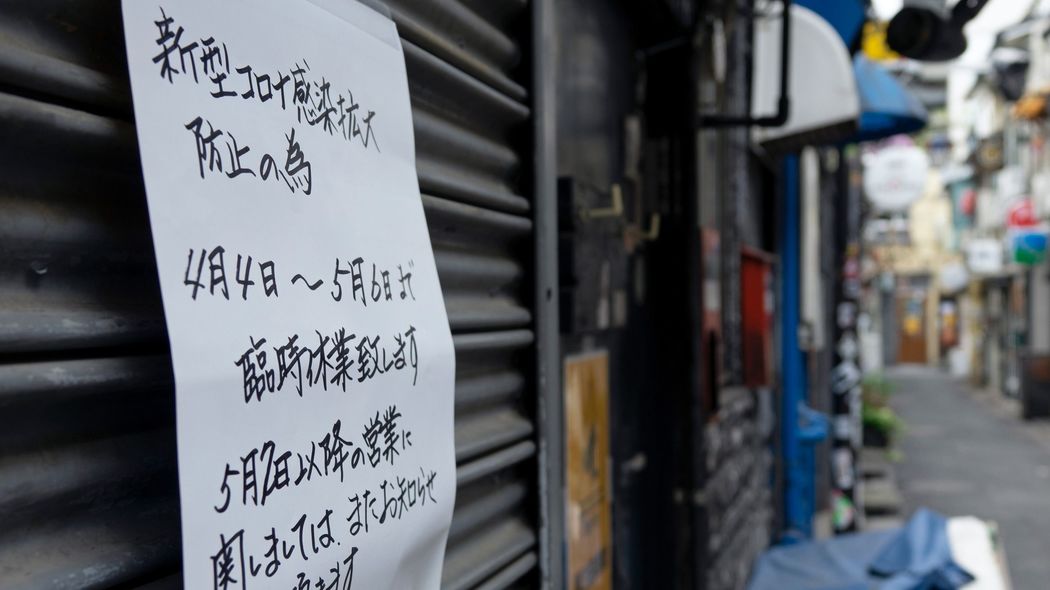 新型コロナ感染拡大
防止の為
4月4日～5月6日まで
臨時休業致します
5月7日以降の営業に
関しましては、またお知らせ
致します